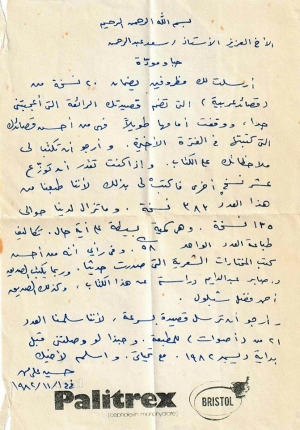 بسم الله الرحمن الرحيم
الأخ العزيز الأستاذ / سعد عبد الرحمن
حبا ومودّة
أرسلت لك مظروفين يضمان ٢٠ نسخة من
(قصائد عربية) التى تضم قصيدتك الرائعة التى أعجبتنى
جدا، ووقفت أمامها طويلاً، فهى من أحسن قصائدك
التى كتبتها فى الفترة الأخيرة. وأرجو أن تكتب لى
ملاحظاتك على الكتاب. وإذا كنت تقدر أن توزّع
عشر نسخ أخرى فاكتب لى بذلك لأننا طبعنا من
هذا العدد ٣٨٣ نسخة. ومازال لدينا حوالى
١٣٥ نسخة. وهى كمية بسيطة على أية حال. تكاليف
طباعة العدد الواحد ٥٨ وفى رأيى أنه من أحسن
كتب المختارات الشعرية التى صدرت حديثاً. وربما يكتب الصديق
د. صابر عبد الدايم دراسة عن هذا الكتاب، وكذلك الصديق
أحمد فضل شبلول.
وأرجو أن ترسل قصيدة بسرعة، لأننا سلمنا العدد
٢١ من (أصوات) للطبعة. وحبذا لو وصلتنى قبل
بداية ديسمبر ١٩٨٢. مع تحياتى، واسلم لأخيك
حسين على محمد
فى ١/١١/١٩٨٢
Palitrex
(cephalexin monohydrate)
BRISTOL